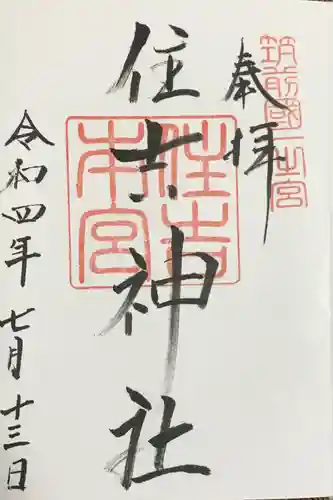 筑前國一之宮
奉拝
住吉神社
住吉本宮
令和四年七月十三日